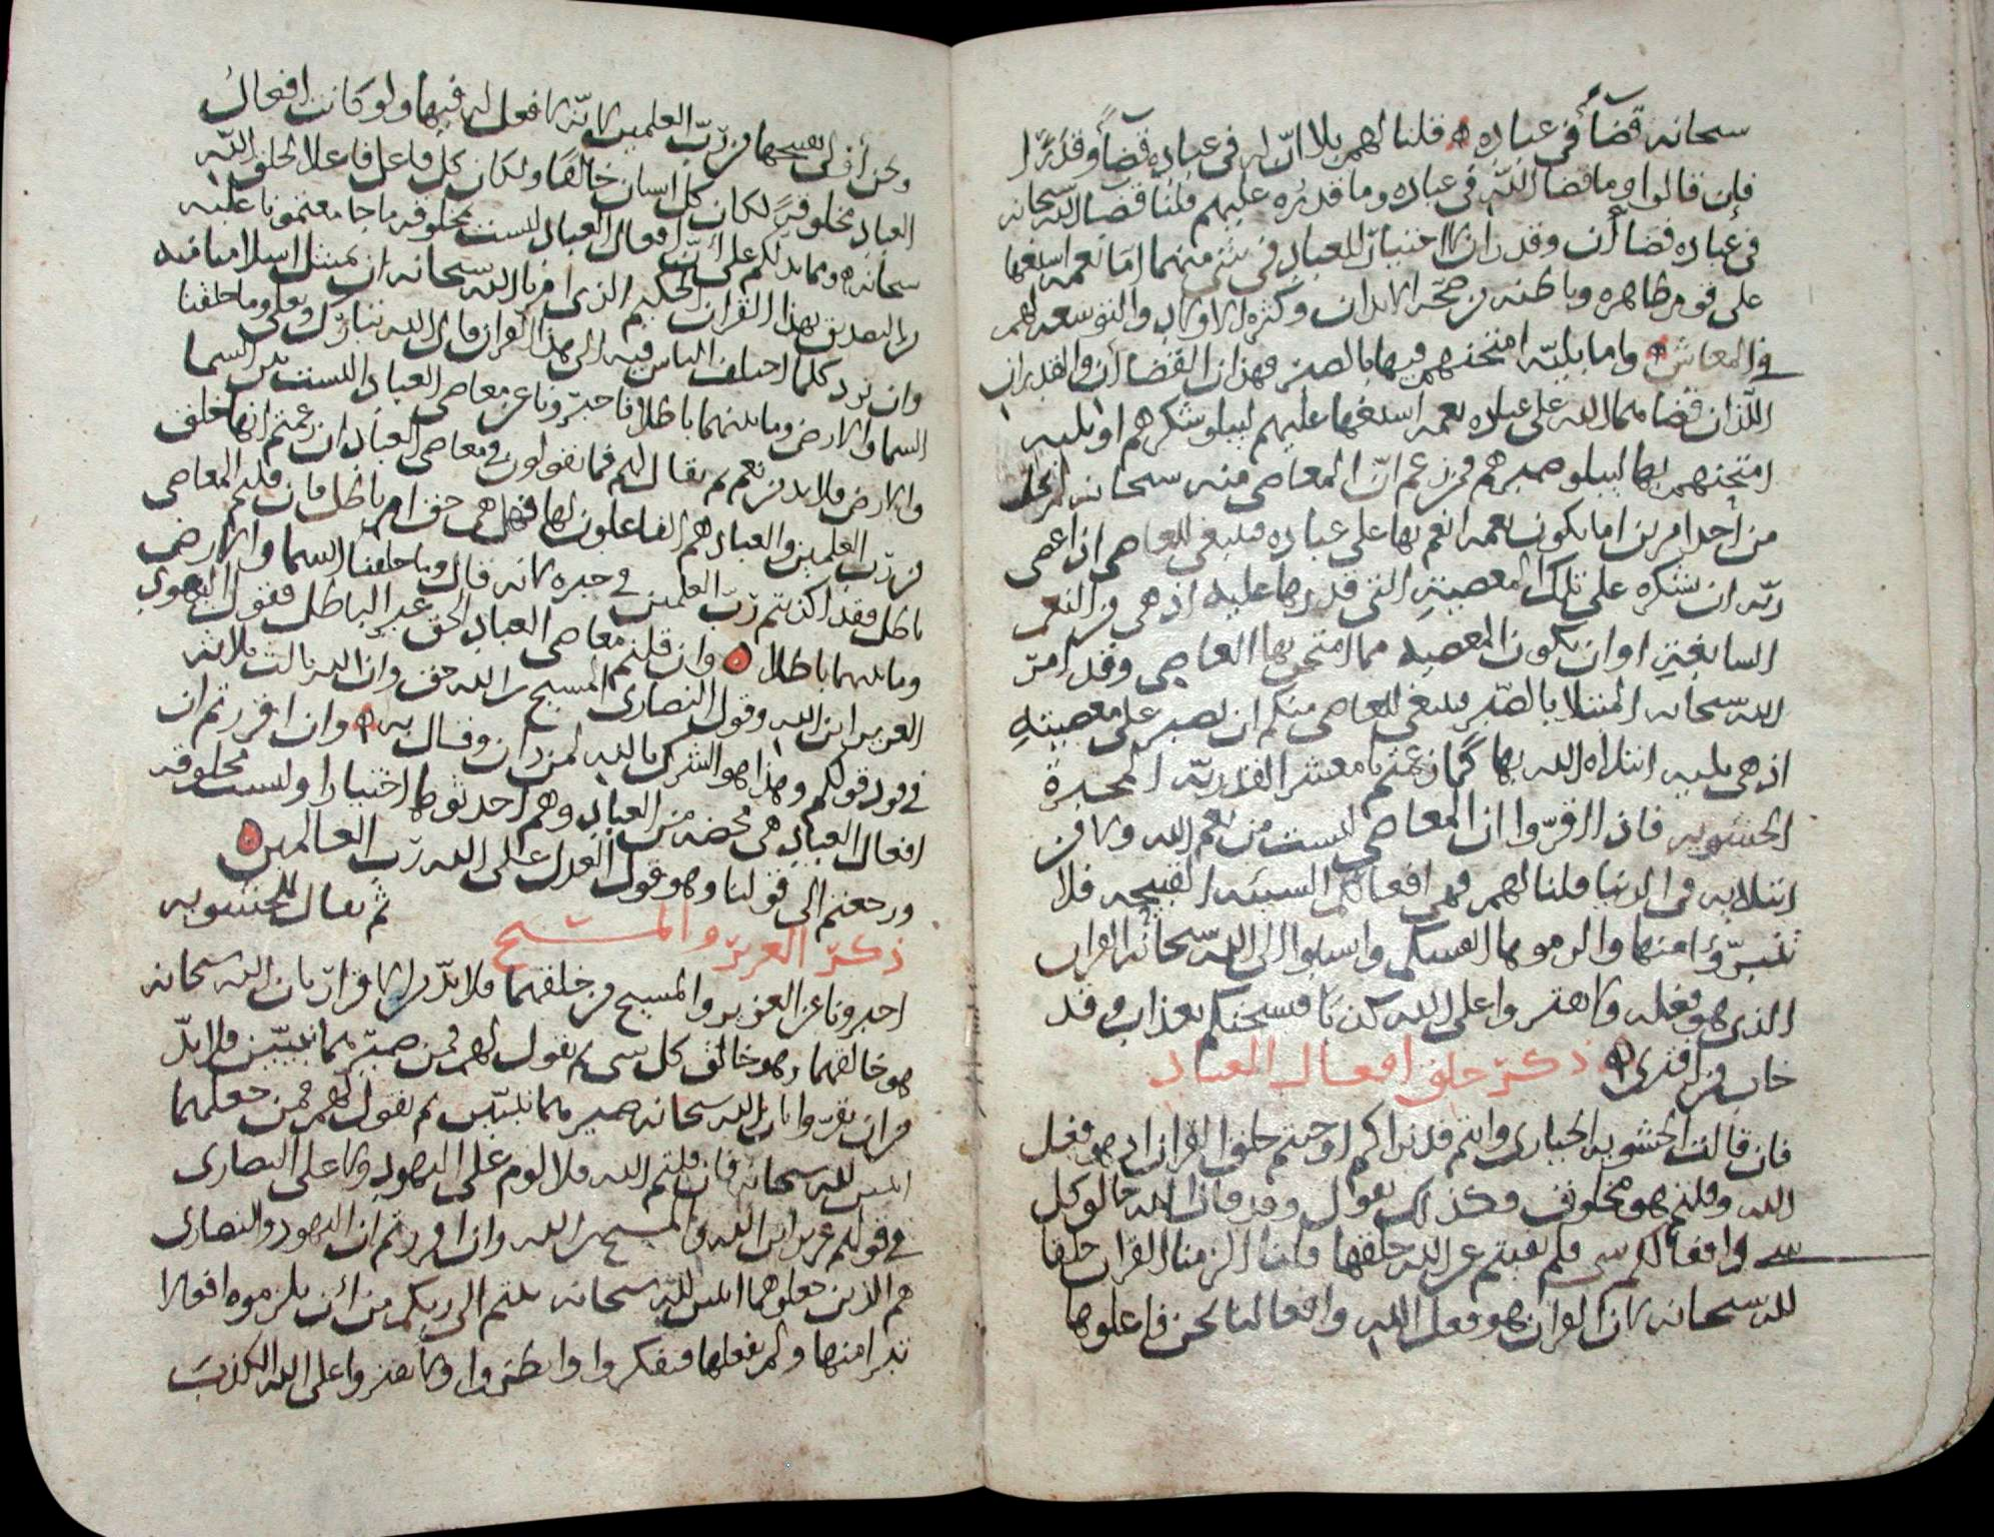 سبحانه قضآءً في عباده ۞ قلنا لهم بلا انّ له في عباده قضآءً وقدَرًا
فإن قالوا وما قضا اللّه في عباده وما قدره عليهم قلنا قضا الله سبحانه
في عباده قضاأن وقدران لا اختيار للعباد في شي منهما امّا نعمه اسبغها
على قوم ظاهره وباطنه من صحّه الابدان وكثره الاولاد والتوسعه لهم
في المعاش ۞ واما بليّه امتحنهم فيها بالصبر فهذان القضاأن والقدران
اللذان قضاهما الله على عباده نعمه اسبغها عليهم ليبلو شكرهم او بليه
امتحنهم بها ليبلو صبرهم فمن زعم انّ المعاصي منه سبحانه لم تخل
من أحد امرين اما يكون نعمه انعم بها على عباده فينبغي للعاصي اذا عصى
ربّه ان يشكره على تلك المعصيةِ التي قدرها عليه اذ هي من النعم
السابغتين او ان يكون المعصيه مما امتحن بها العاصي وقد امرّ
الله سبحانه المبتلا بالصّبر فينبغي للعاصي منكم ان يصبر على معصيتهِ
اذ هي بليه ابتلاه الله بها كما زعمتم يا معشر القدريّه المجبرة
الحشويه فان اقرّوا ان المعاصي ليست من نعم الله ولا من
ابتلايه في الدنيا قلنا لهم فهي افعالكم السيئه القبيحه فلا
تتبرّؤا منها والزموها انفسكم واسلوا الى الله سبحانه القران
الذي هو فعله ولا تفتروا على الله كذبًا فيسحتكم بعذاب وقد
خاب من افترى ۞ ذكرّ خلق افعال العباد
فان قالت الحشويه الجباري وانتم قد نراكم اوجبتم خلق القران اذ هو فعل
الله وقلتم هو مخلوق وكذلك نقول وقد قال الله خالق كل
شي وافعالكم شي فلم نفيتم عن الله خلقها قلنا الزمنا القران خلقا
لله سبحانه لان القران هو فعل الله وافعالنا نحن فاعلوها
ونحن أولى بقبيحها من ربّ العلمين لانّه لا فعل له فيها ولو كانت افعال
العباد مخلوقةً لكان كل انسان خالقًا ولكان كل فاعل فاعلا لخلق اللّه
سبحانه ومما يدلكم على أنّ افعال العباد ليست بمخلوقه ما جامعتمونا عليه
من التصديق بهذا القران الحكيم الذي امرنا الله سبحانه ان نمتثل اسلامنا فيه
وان نرد كلما اختلف الناس فيه الى هذا القران قال الله تبارك وتعلى وما خلقنا
السما والارض وما بينهما باطلا فاخبرونا عن معاصي العباد اليست بين السما
والارض فلا بد من نعم ثم يقال لهم فما تقولون في معاصي العباد ان زعمتم انها خلق
من ربّ العلمين والعباد هم الفاعلون لها فهل هي حق ام باطل فان قلتم المعاصي
باطل فقد اكذبتم ربّ العلمين في خبره لانه قال وما خلقنا السما والارض
وما بينهما باطلا ۞ وان قلتم معاصي العباد الحق غير الباطل فقول اليهودي
العزير ابن الله وقول النصارى المسيح بن الله حق وان الله ثالث ثلاثه
في قود قولكم وهذا هو الشرك بالله لمن دان وقال به ۞ وان اقررتم ان
افعال العباد هي محضه من العباد وهم احدثوها اختيارا وليست مخلوقه
ورجعتم الى قولنا وهو قول العدل على الله ربّ العالمين ۞
ذكرّ العزيرّ والمسيح ثم يقال للحشويه
اخبرونا عن العزير والمسيح من خلقهما فلا بدّ من الاقرار بان الله سبحانه
هو خالقهما وهو خالق كل شي ثم نقول لهم فمن صيّرهما نبيّين فلا بدّ
من ان يقرّوا بان الله سبحانه صيرهما نبيّين ثم نقول لهم فمن جعلهما
ابنين لله سبحانه فان قلتم الله فلا لوم على اليهود ولا على النصارى
في قولهم عزير ابن الله والمسيح بن الله وان اقررتم ان اليهود والنصارى
هم الذين جعلوهما ابنين للّه سبحانه بتتم الى ربكم من أن يلزموه افعالا
تبرا منها ولم يفعلها فتفكروا وانظروا ولا تفتروا على الله الكذبَ